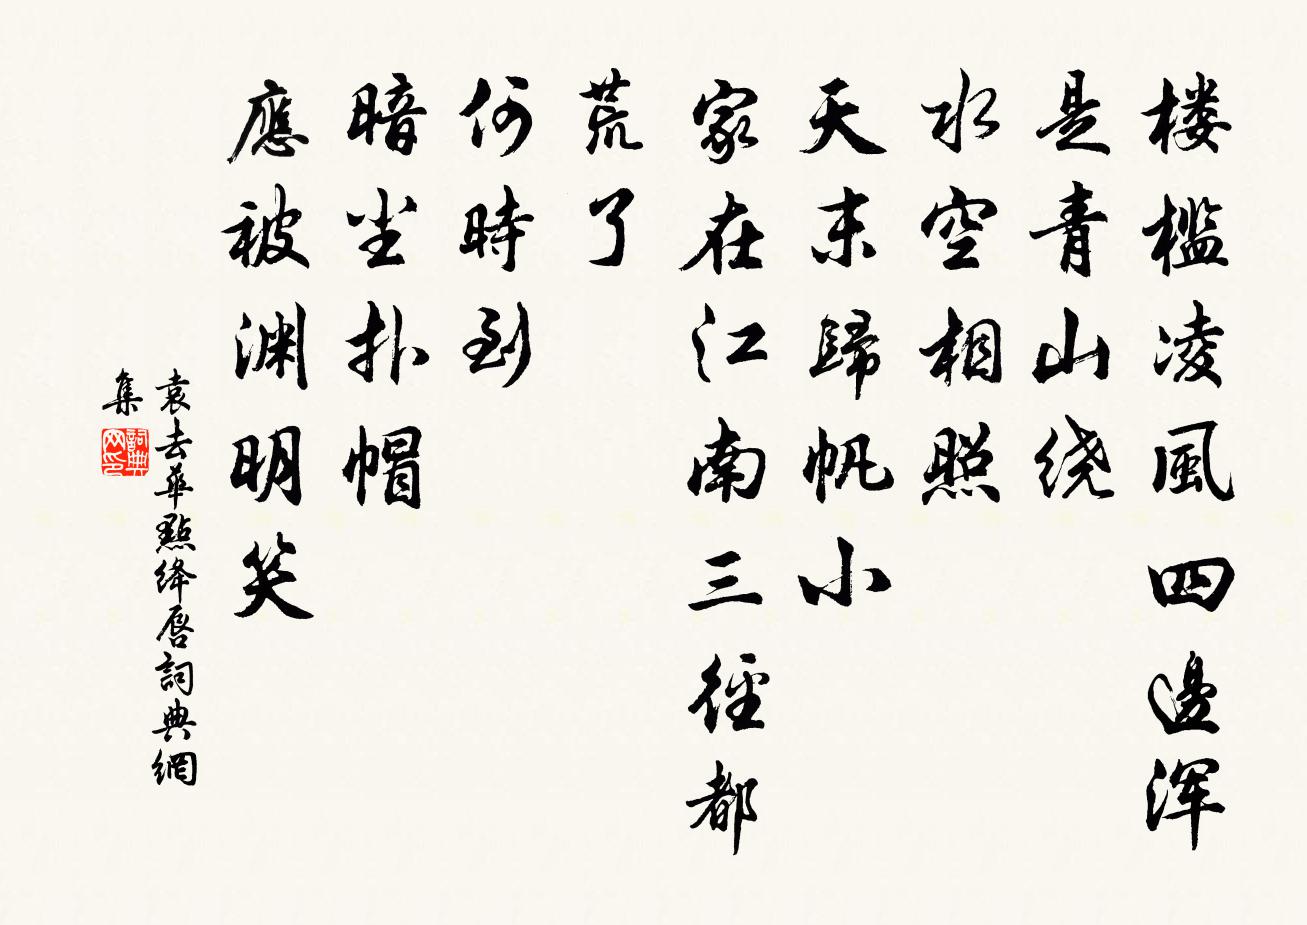 楼槛凌風四邊浑
是青山绕
水空相照
天末歸帆小
家在江南三徑都
荒了
何時到
暗尘扑帽
應被渊明笑
袁去華點绛唇詞典網
集
詞典网印